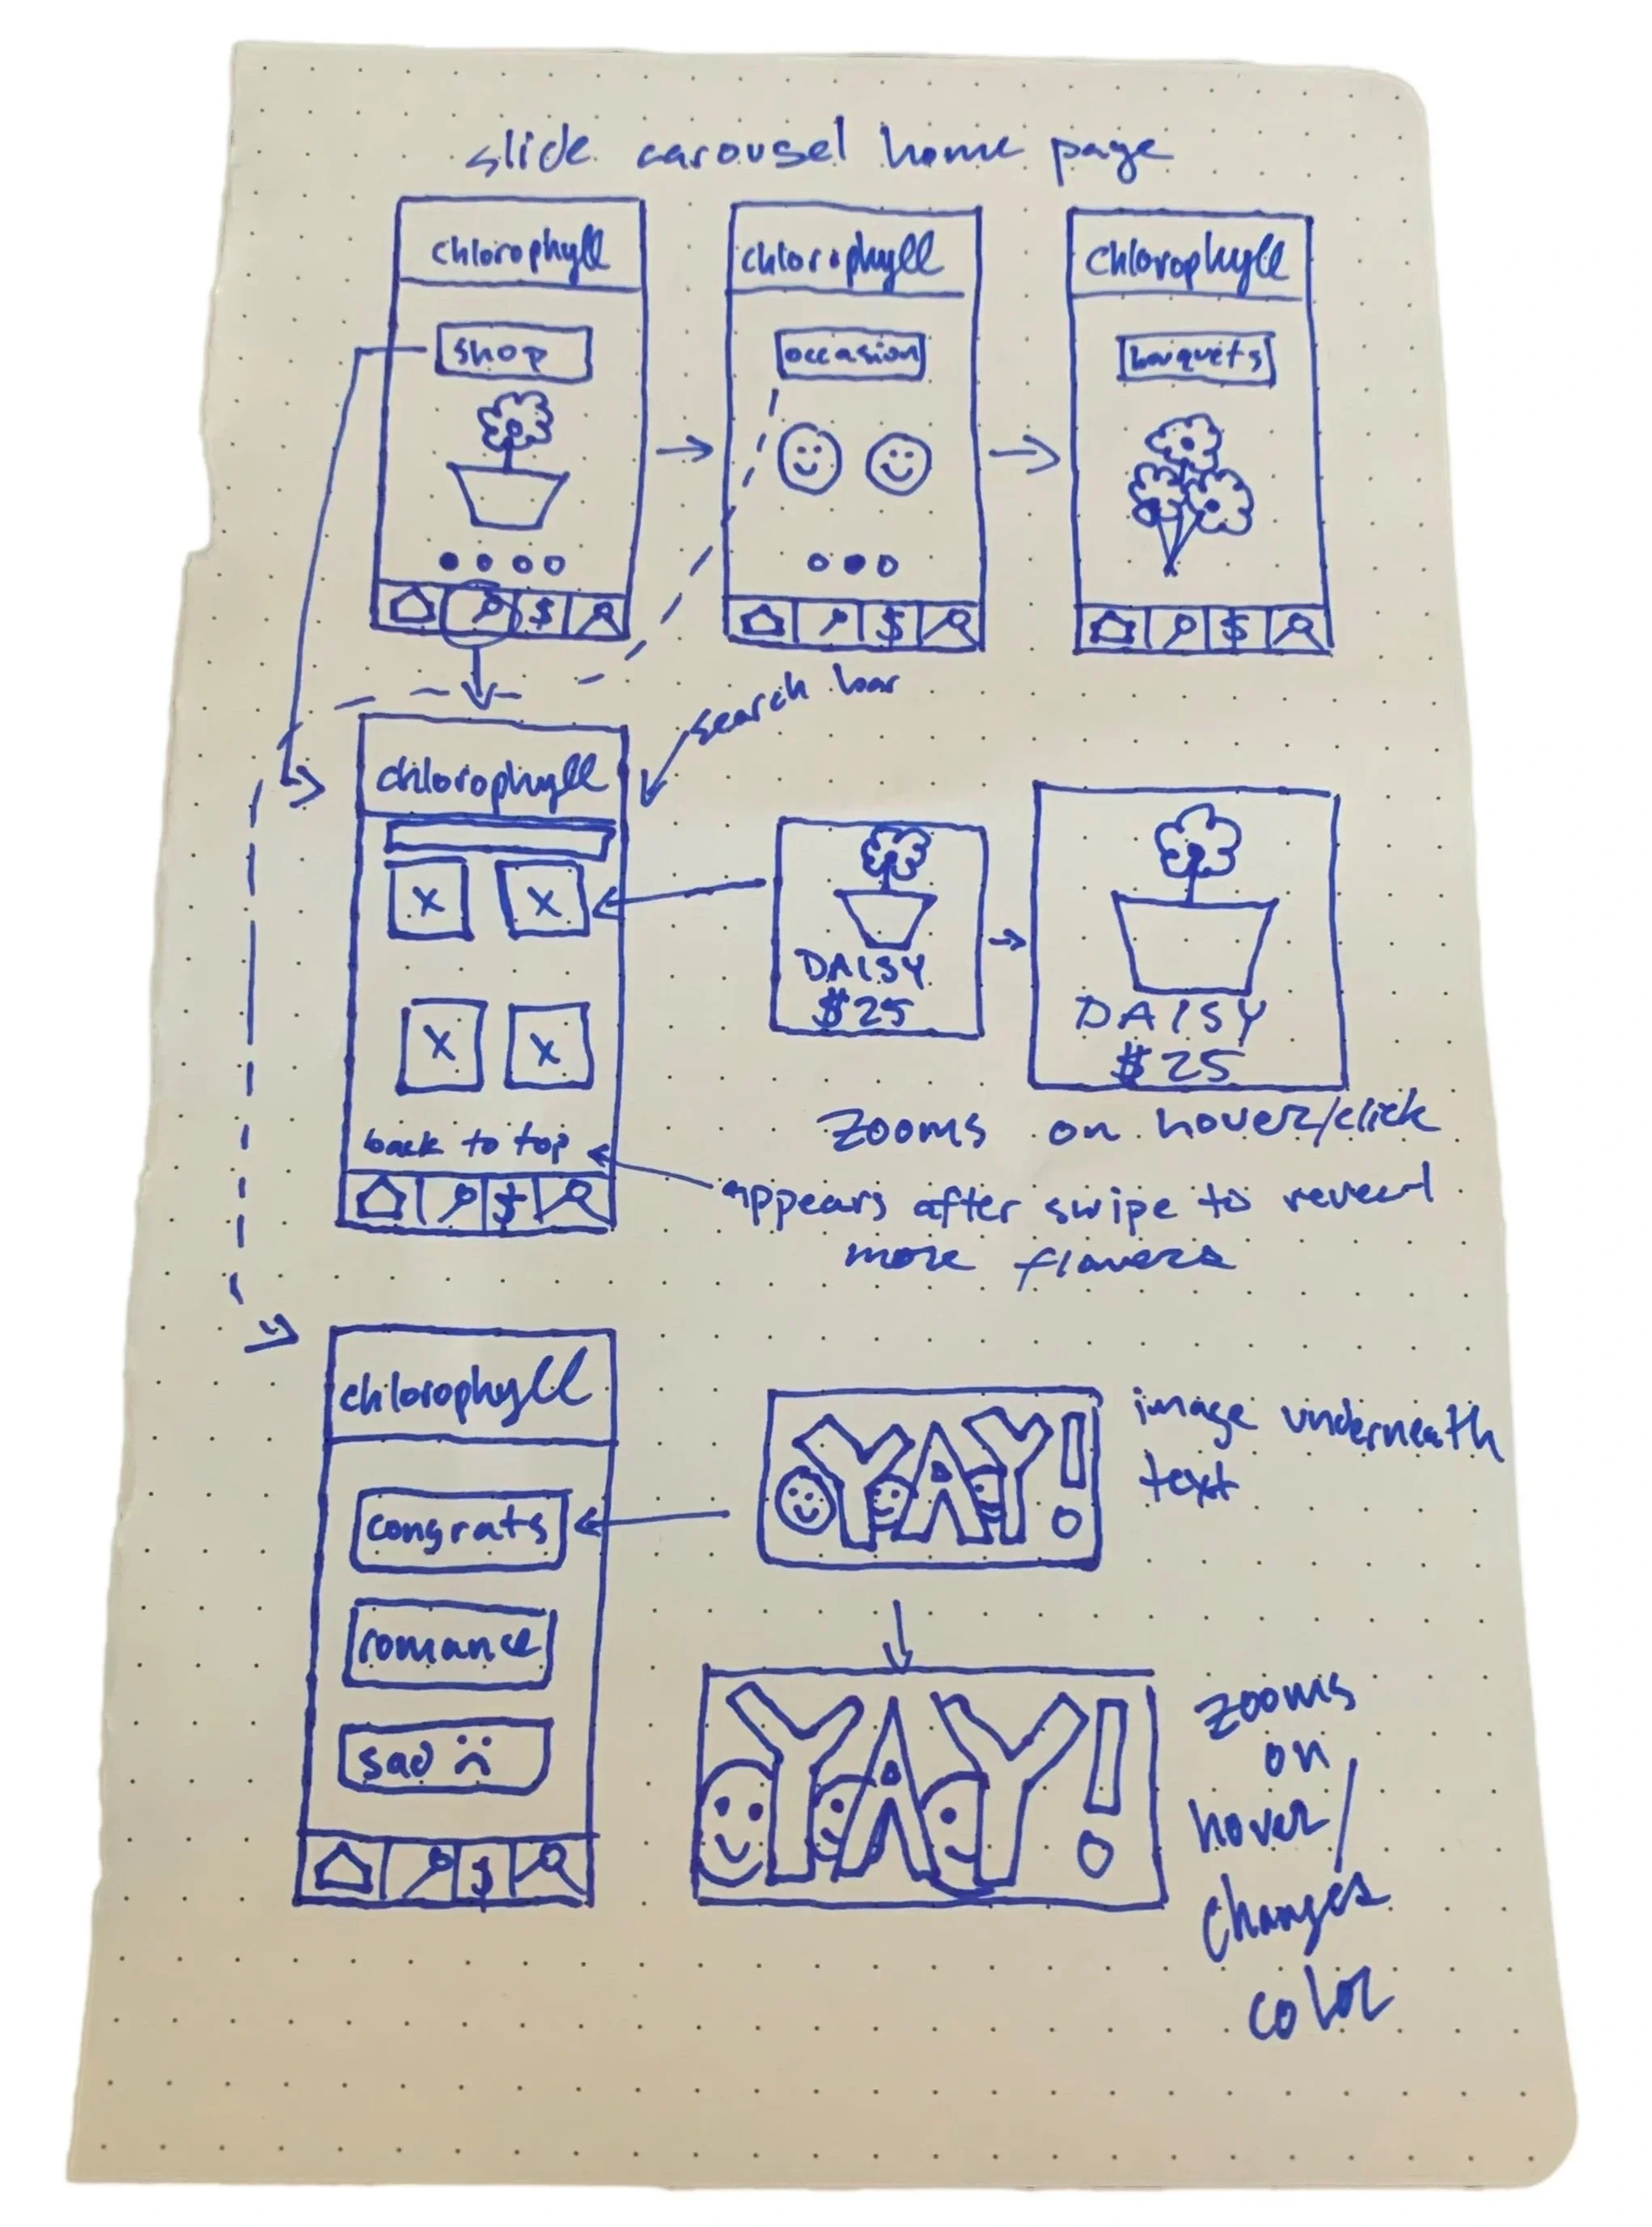 slide carousel home page
chlorophyll
chlorophyll
chlorophyll
shop
occasion
bouquets
$
$
$
search bar
chlorophyll
DAISY
$25
DAISY
$25
zooms on hover/click
back to top
appears after swipe to reveal
more flowers
$
chlorophyll
YAY!
image underneath
text
congrats
romance
sad
YAY!
zooms
on
hover/
changes
color
$